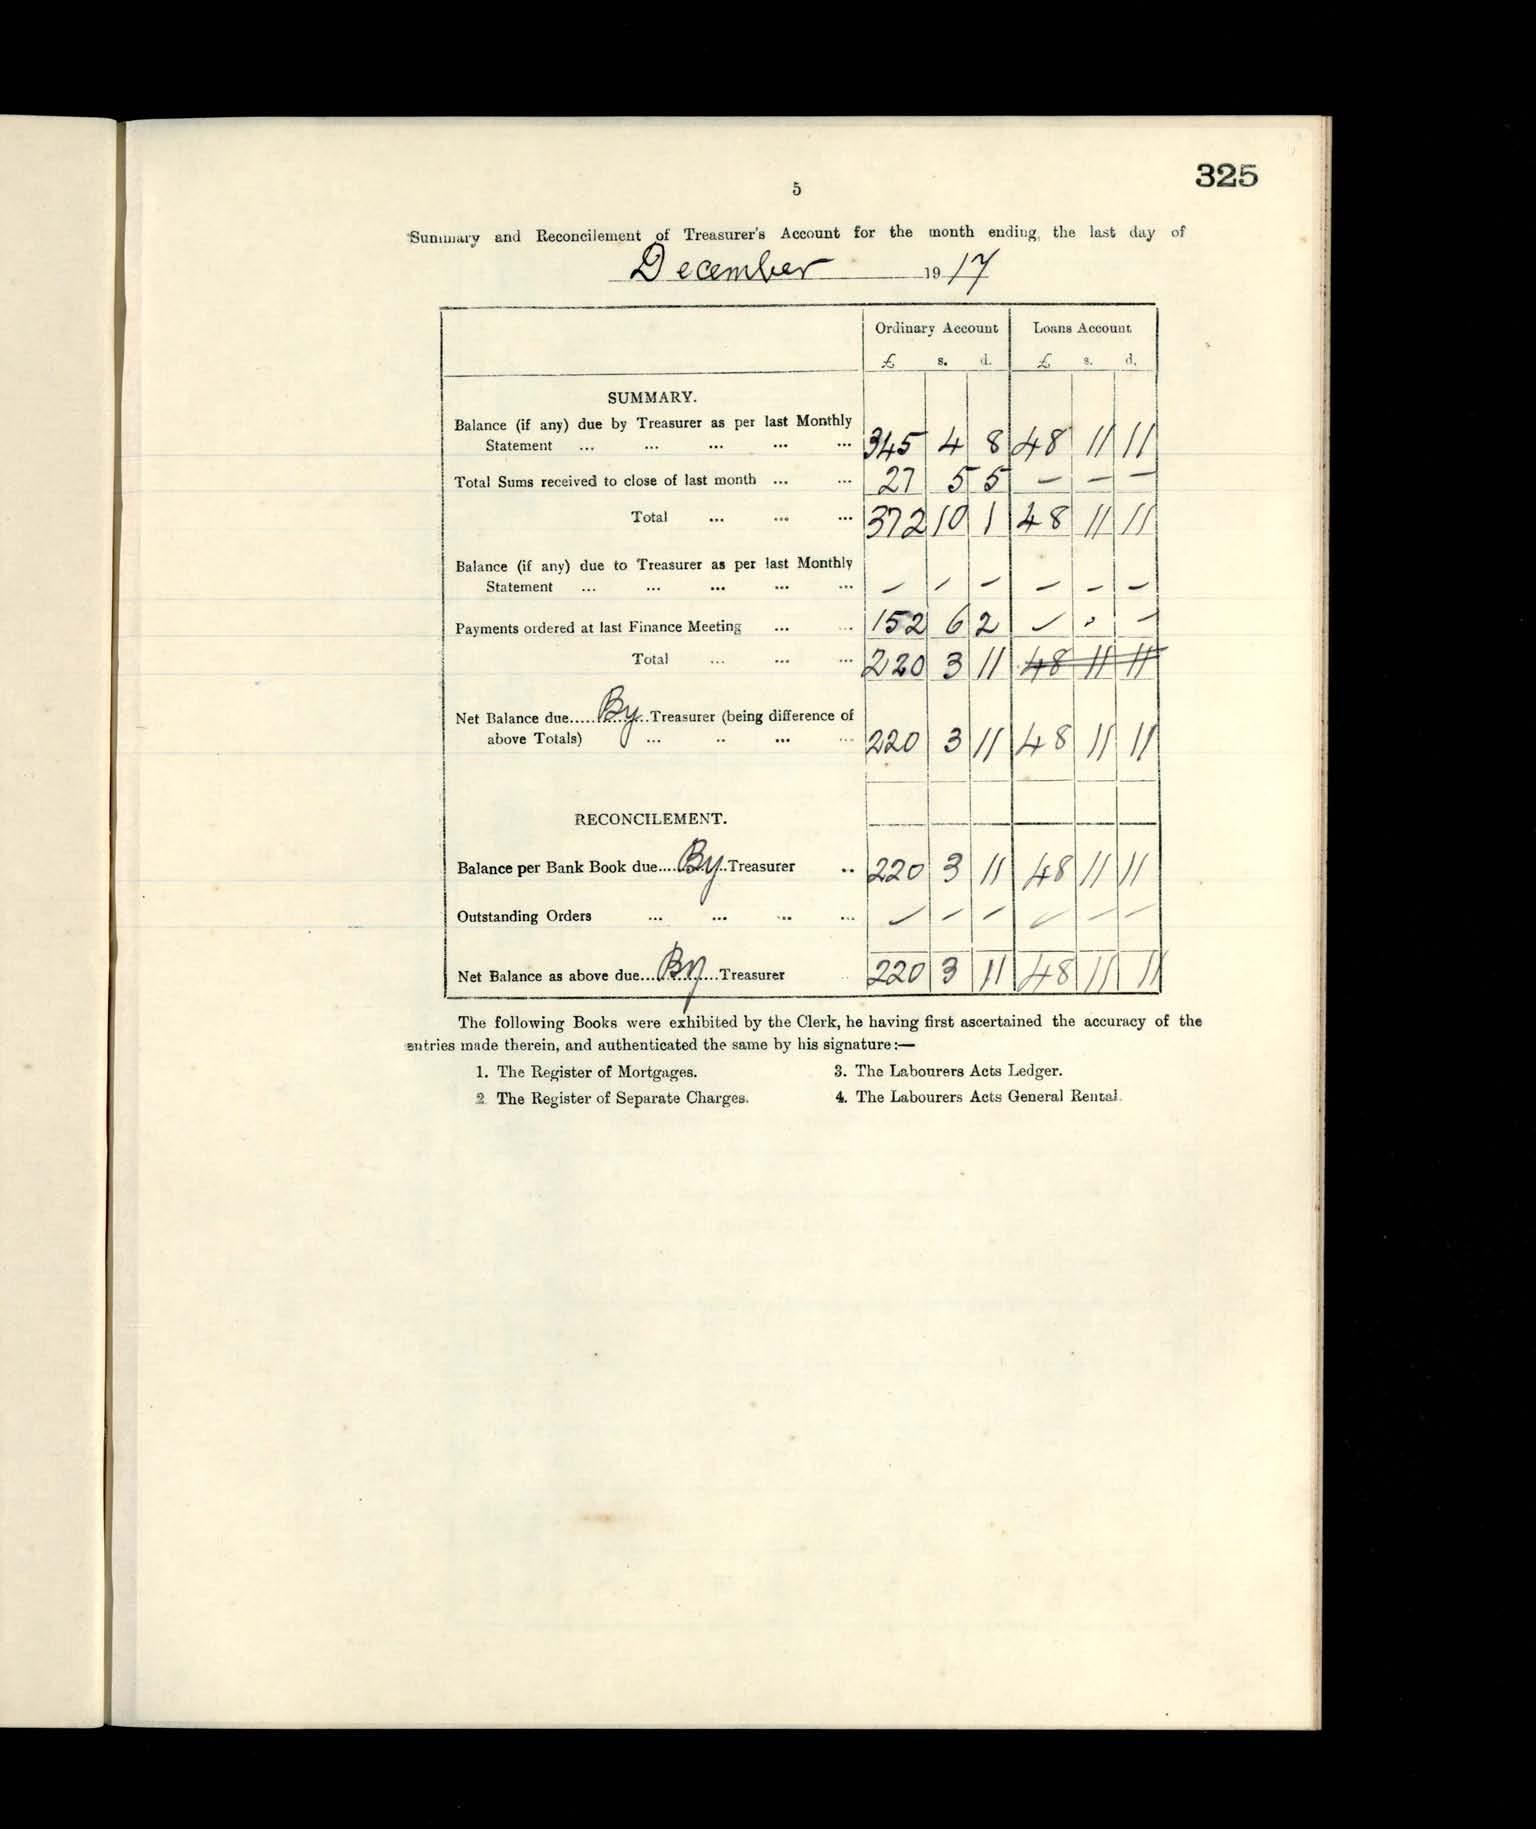 325
5
Summary and Reconcilement of Treasurer's Account for the month ending, the last day of
December 1917
Ordinary Account Loans Account
£ s. d. £ s. d.
SUMMARY.
Balance (if any) due by Treasurer as per last Monthly
Statement ... ... ... ... ... 345 4 8 48 11 11
Total Sums received to close of last month ... ... 27 5 5 — — —
Total ... ... ... 372 10 1 48 11 11
Balance (if any) due to Treasurer as per last Monthly
Statement ... ... ... ... ... — — — — — —
Payments ordered at last Finance Meeting ... ... 152 6 2 — — —
Total ... ... ... 220 3 11 48 11 11
Net Balance due.....By..Treasurer (being difference of
above Totals) ... .. ... ... 220 3 11 48 11 11
RECONCILEMENT.
Balance per Bank Book due....By..Treasurer .. 220 3 11 48 11 11
Outstanding Orders ... ... ... ... — — — — — —
Net Balance as above due...By...Treasurer 220 3 11 48 11 11
The following Books were exhibited by the Clerk, he having first ascertained the accuracy of the
entries made therein, and authenticated the same by his signature:—
1. The Register of Mortgages. 3. The Labourers Acts Ledger.
2 The Register of Separate Charges. 4. The Labourers Acts General Rental.